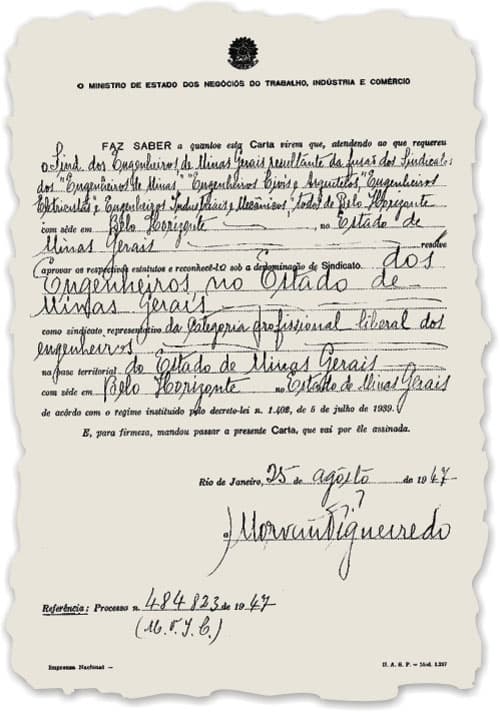 O MINISTRO DE ESTADO DOS NEGÓCIOS DO TRABALHO, INDÚSTRIA E COMÉRCIO
FAZ SABER a quantos esta Carta virem que, atendendo ao que requereu
o Sind. dos Engenheiros de Minas Gerais resultante da fusão dos Sindicatos
dos "Engenheiros de Minas," "Engenheiros Civis e Arquitetos," "Engenheiros
Eletricistas e Engenheiros Industriais e Mecânicos," todos de Belo Horizonte
com séde em Belo Horizonte no Estado de
Minas Gerais resolve
aprovar os respectivos estatutos e reconhecê-lo sob a denominação de Sindicato dos
Engenheiros no Estado de
Minas Gerais
como sindicato representativo da categoria profissional liberal dos
engenheiros
na base territorial do Estado de Minas Gerais
com séde em Belo Horizonte no Estado de Minas Gerais
de acôrdo com o regime instituído pelo decreto-lei n. 1.402, de 5 de julho de 1939.
E, para firmeza, mandou passar a presente Carta, que vai por êle assinada.
Rio de Janeiro, 25 de agôsto de 1947
a) Morvan Figueiredo
Referência: Processo n. 484823 de 1947
(M.T.I.C.)
Imprensa Nacional — D. A. S. P. — Mod. 1.297